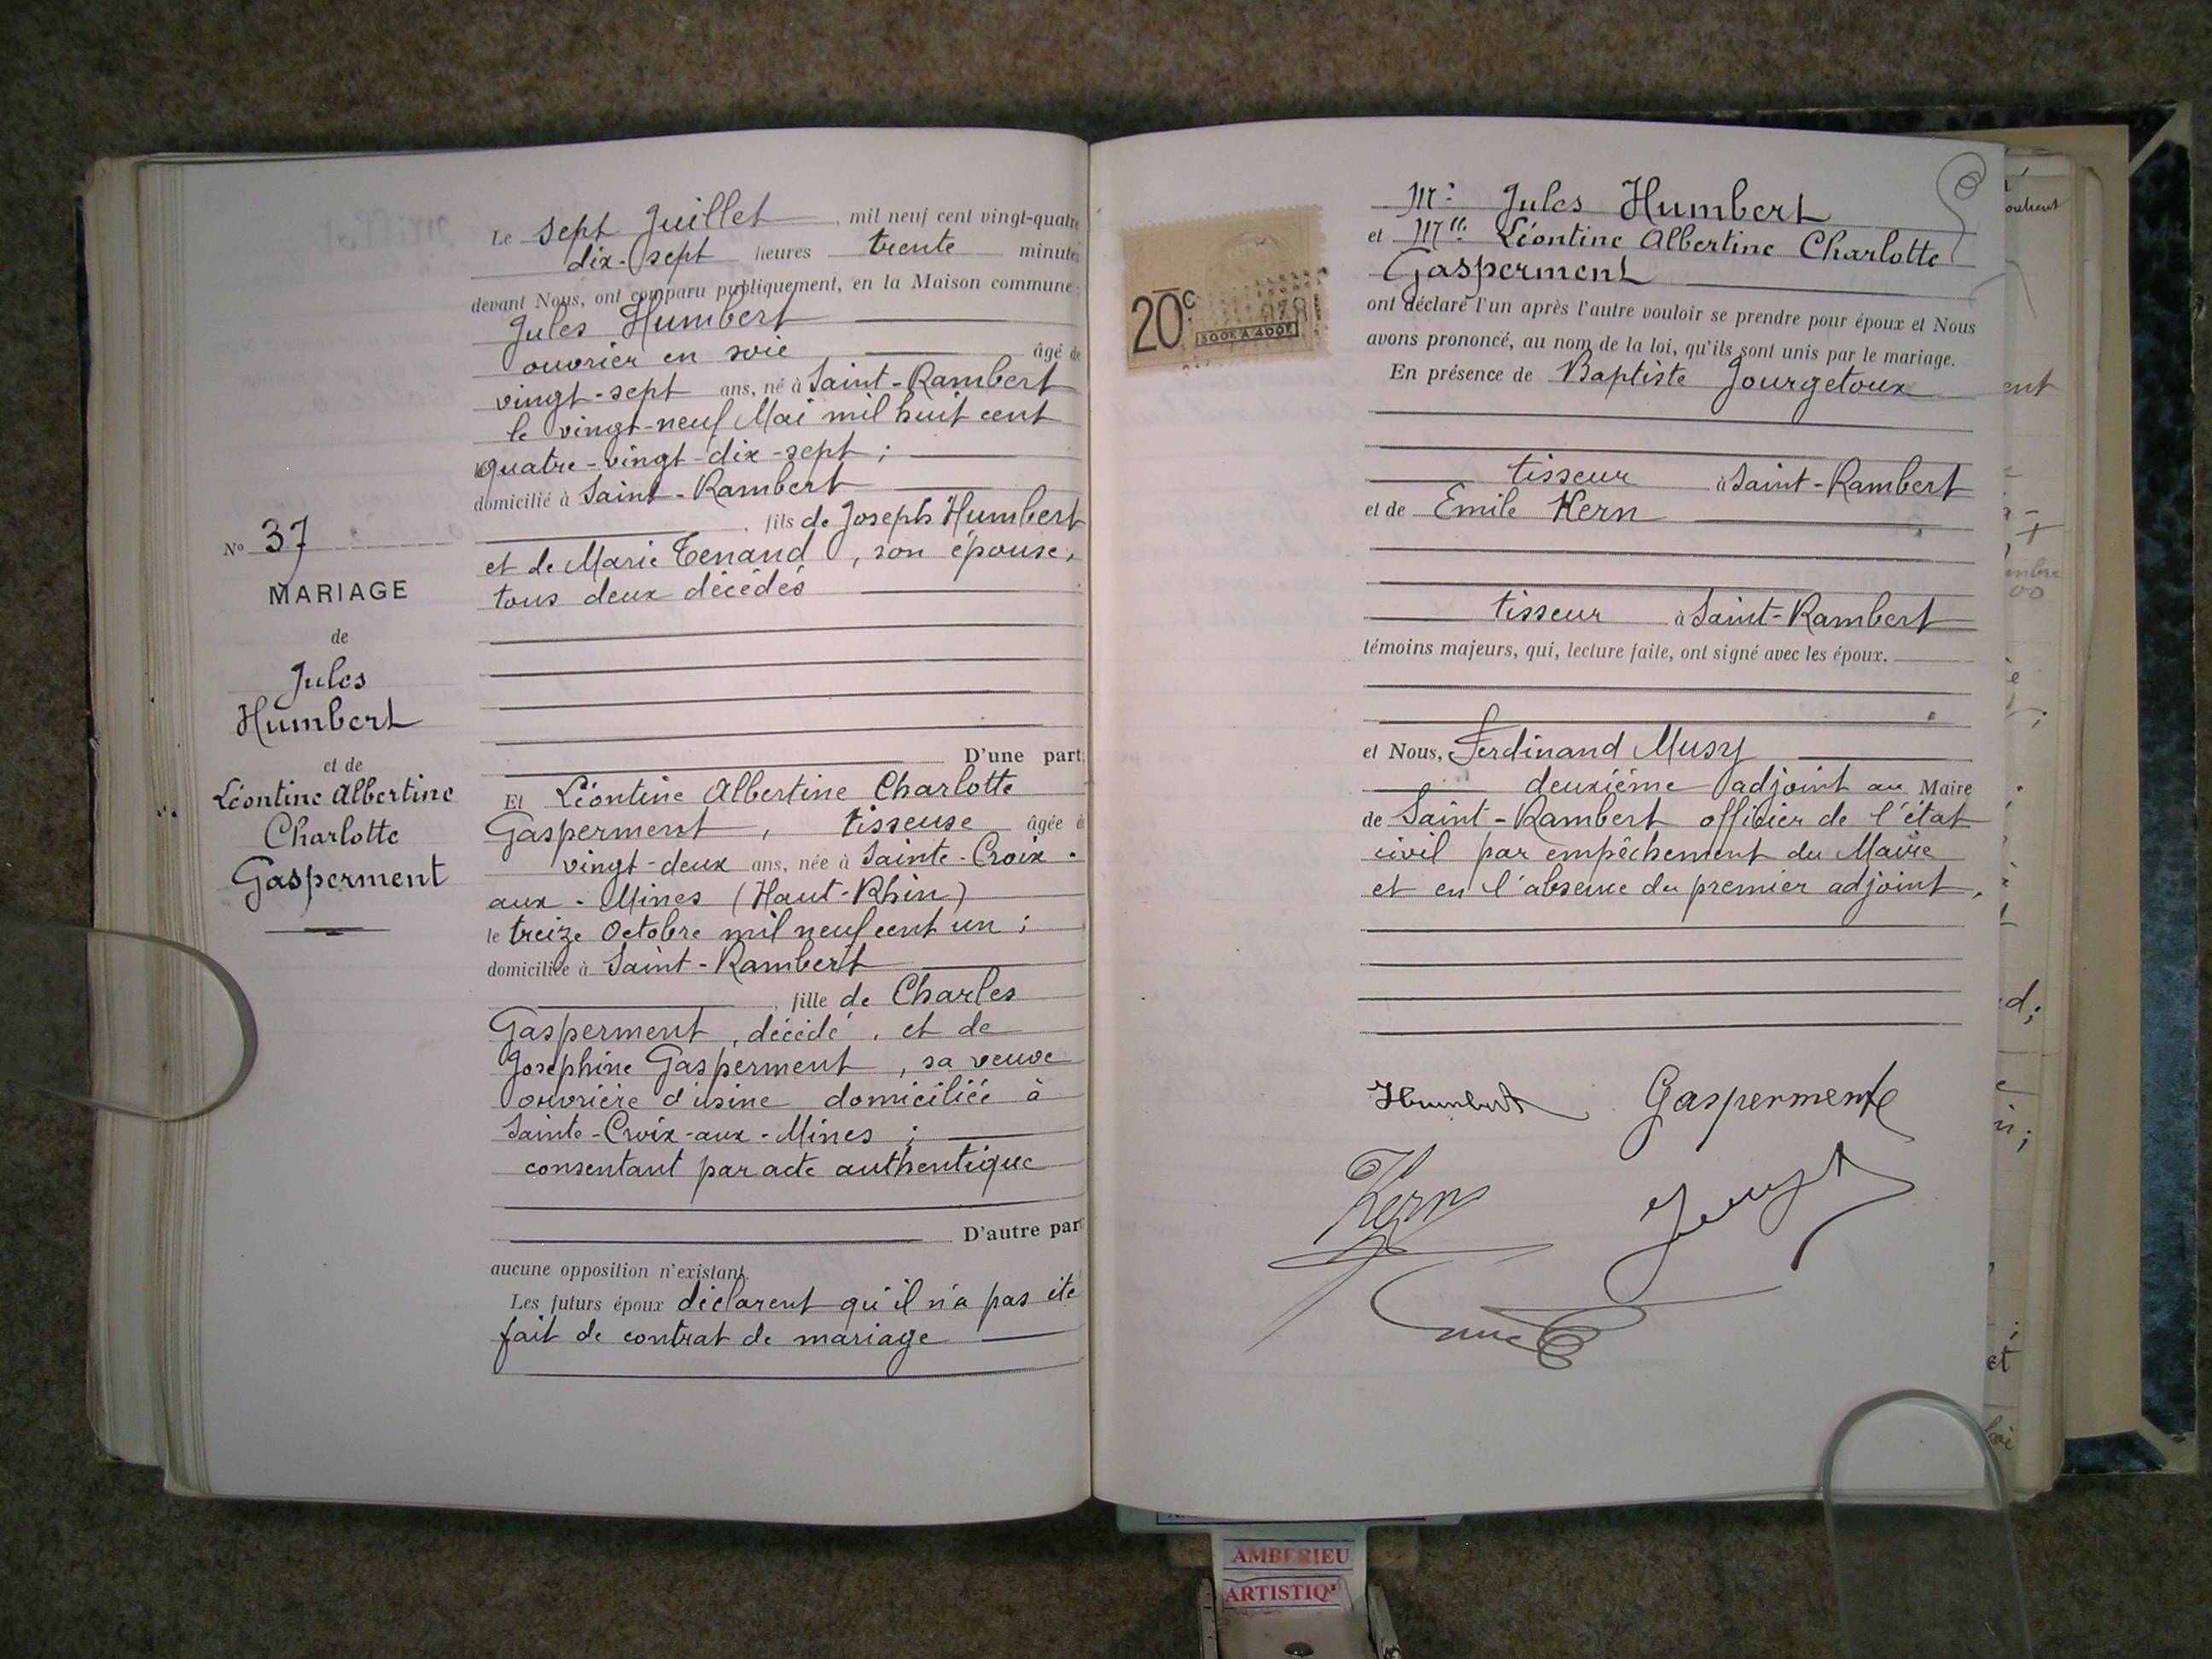 N° 37
MARIAGE
de
Jules
Humbert
et de
Léontine Albertine
Charlotte
Gasperment
Le sept Juillet, mil neuf cent vingt-quatre
dix-sept heures trente minutes
devant Nous, ont comparu publiquement, en la Maison commune:
Jules Humbert
ouvrier en soie âgé de
vingt-sept ans, né à Saint-Rambert
le vingt-neuf Mai mil huit cent
quatre-vingt-dix-sept ;
domicilié à Saint-Rambert
, fils de Joseph Humbert
et de Marie Tenand, son épouse,
tous deux décédés
D'une part;
Et Léontine Albertine Charlotte
Gasperment, tisseuse âgée de
vingt-deux ans, née à Sainte-Croix-
aux-Mines (Haut-Rhin)
le treize Octobre mil neuf cent un ;
domiciliée à Saint-Rambert
, fille de Charles
Gasperment, décédé, et de
Joséphine Gasperment, sa veuve
ouvrière d'usine domiciliée à
Sainte-Croix-aux-Mines ;
consentant par acte authentique
D'autre part
aucune opposition n'existant.
Les futurs époux déclarent qu'il n'a pas été
fait de contrat de mariage
20c.
300F A 400F
Mr. Jules Humbert
et Mlle. Léontine Albertine Charlotte
Gasperment
ont déclaré l'un après l'autre vouloir se prendre pour époux et Nous
avons prononcé, au nom de la loi, qu'ils sont unis par le mariage.
En présence de Baptiste Jourgetoux
tisseur à Saint-Rambert
et de Emile Kern
tisseur à Saint-Rambert
témoins majeurs, qui, lecture faite, ont signé avec les époux.
et Nous, Ferdinand Musy
deuxième adjoint au Maire
de Saint-Rambert officier de l'état
civil par empêchement du Maire
et en l'absence du premier adjoint.
Humbert Gasperment
Kern
AMBERIEU
ARTISTIQ